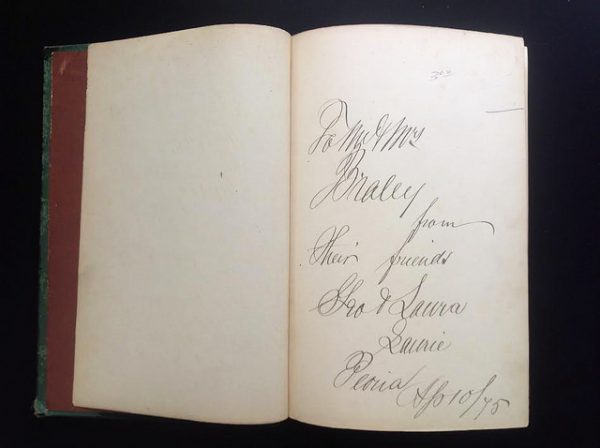 3.00
To Mr & Mrs
Braley
from
their friends
Geo & Laura
Laurie
Peoria Ap 10/75